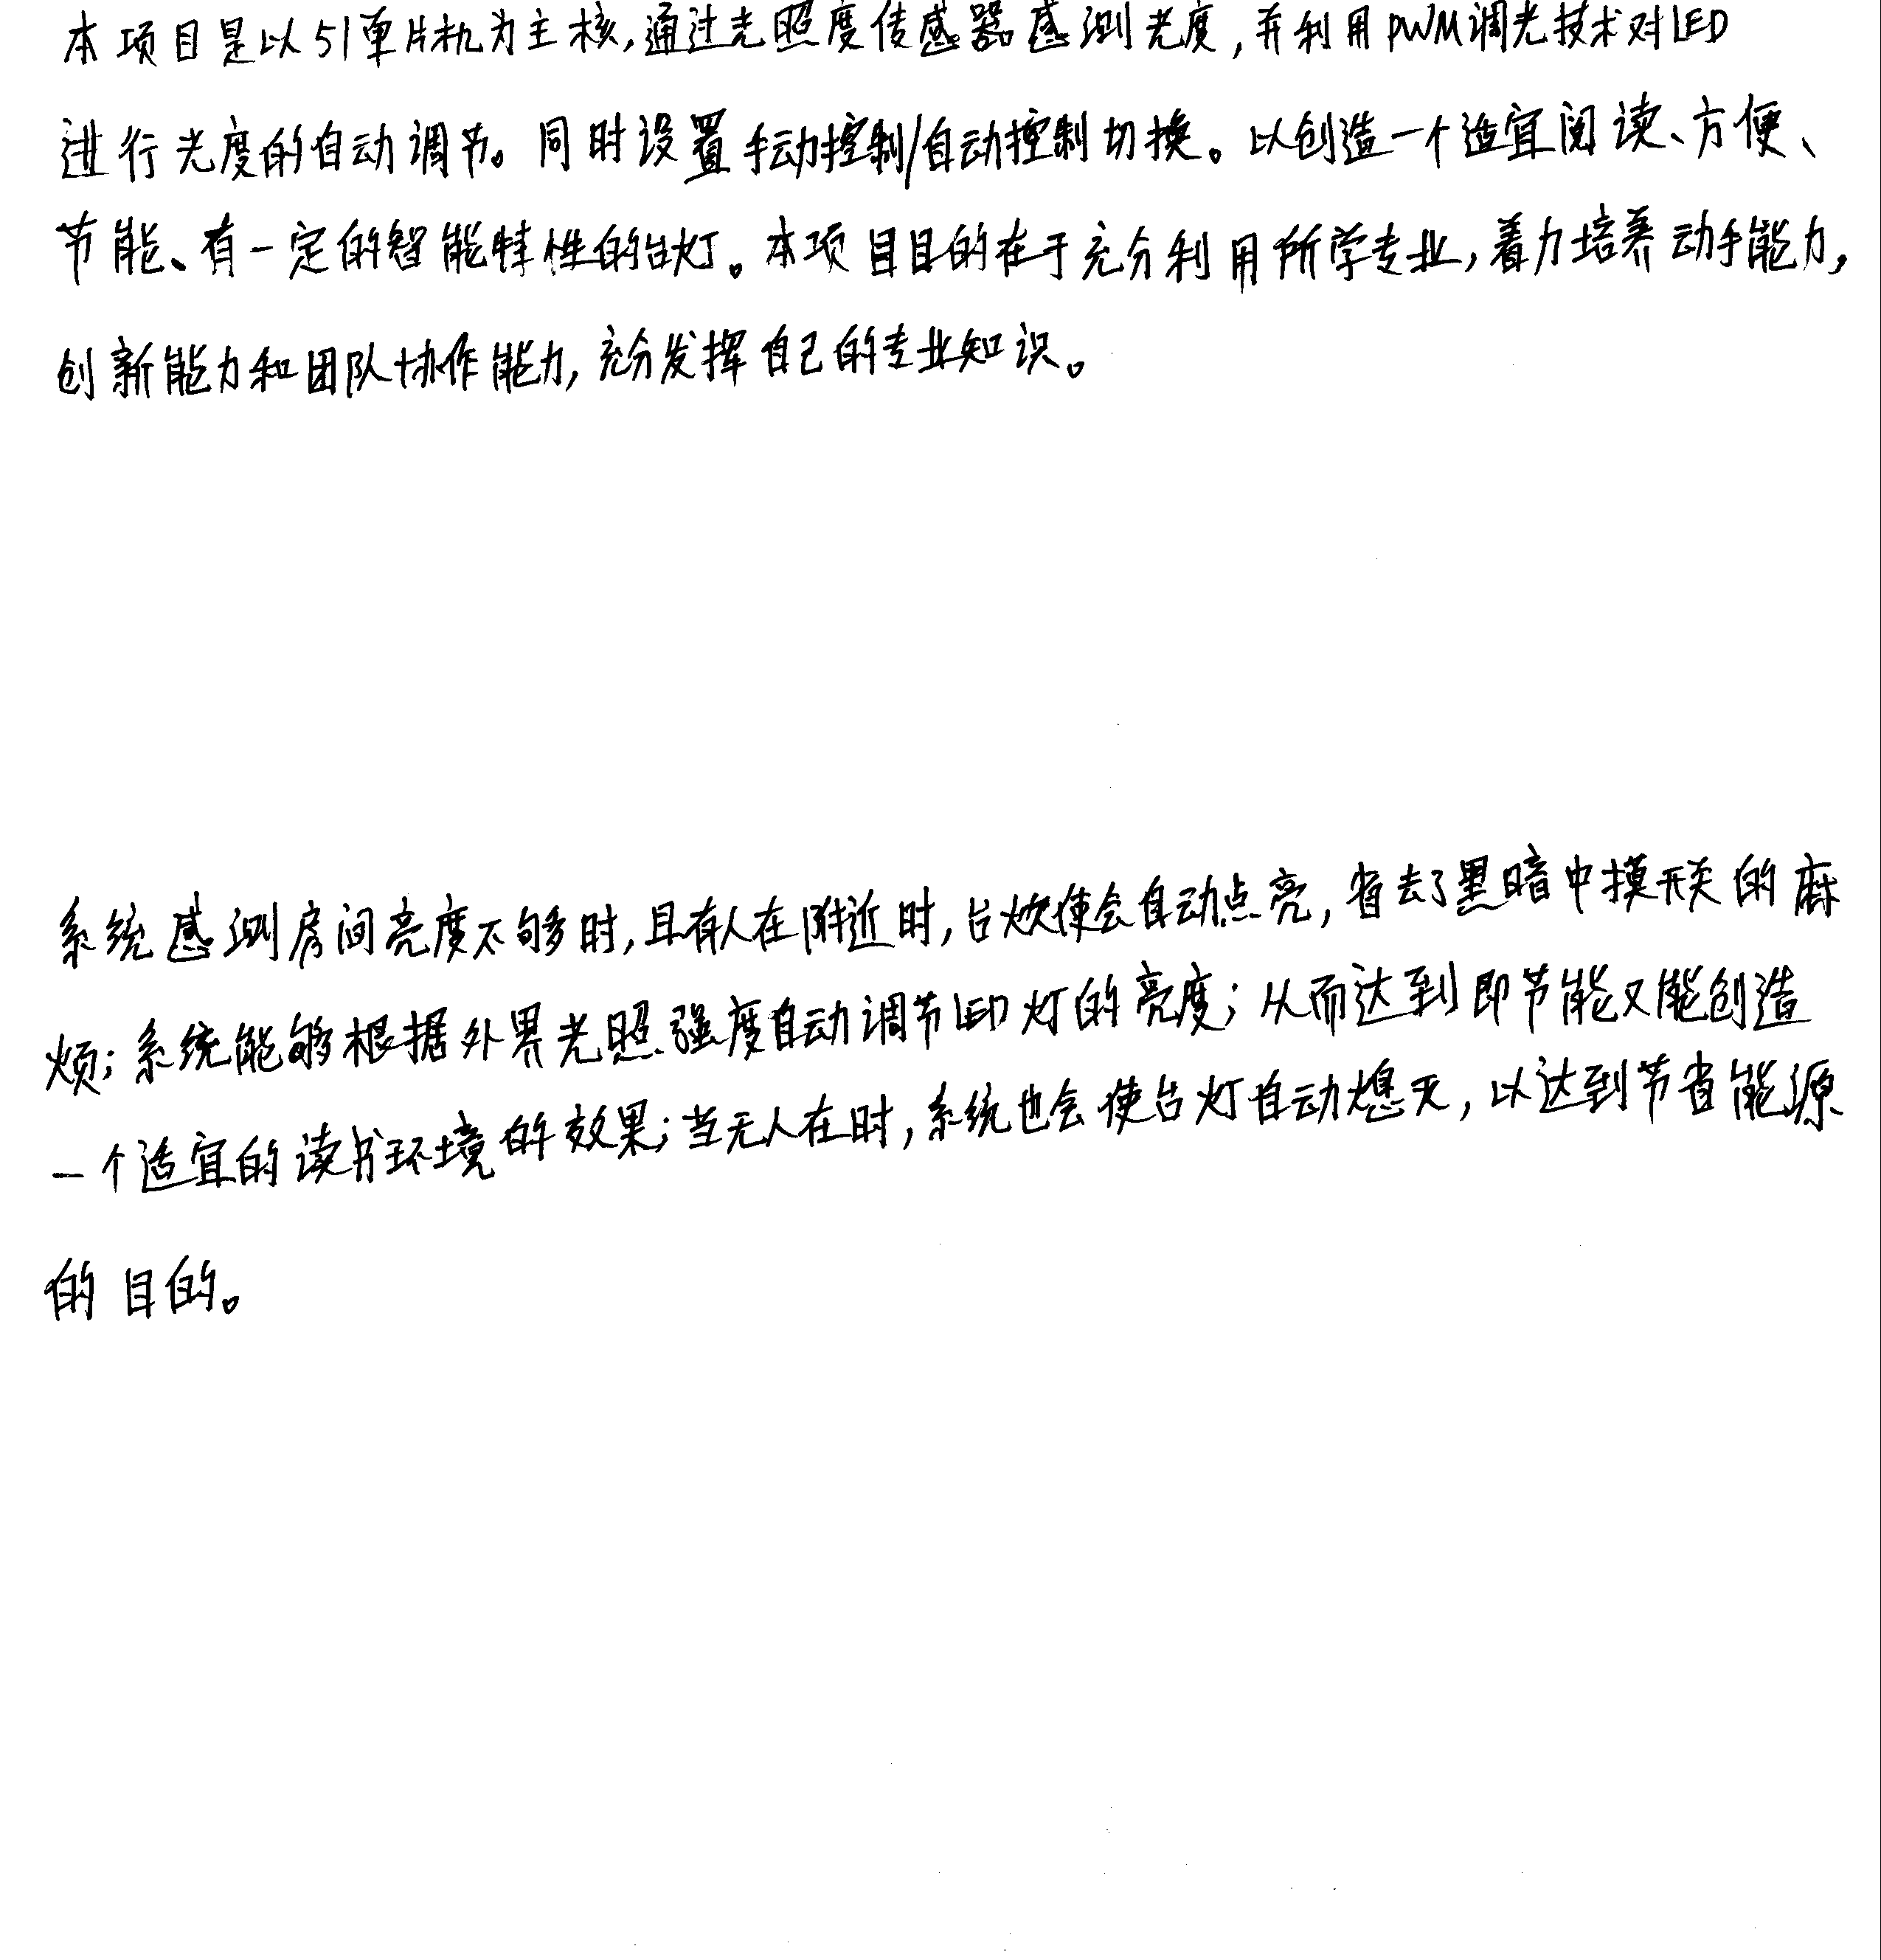 本项目是以51单片机为主核,通过光照度传感器感测光度,并利用PWM调光技术对LED
进行光度的自动调节。同时设置手动控制/自动控制切换。以创造一个适宜阅读、方便、
节能、有一定的智能特性的台灯。本项目目的在于充分利用所学专业,着力培养动手能力,
创新能力和团队协作能力,充分发挥自己的专业知识。
系统感测房间亮度不够多时,且有人在附近时,台灯使会自动点亮,省去了黑暗中摸开关的麻
烦;系统能够根据外界光照强度自动调节LED灯的亮度;从而达到即节能又能创造
一个适宜的读书环境的效果;当无人在时,系统也会使台灯自动熄灭,以达到节省能源
的目的。